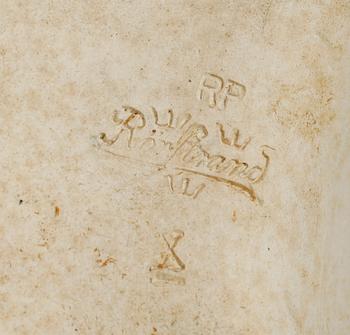 RP
Rörstrand